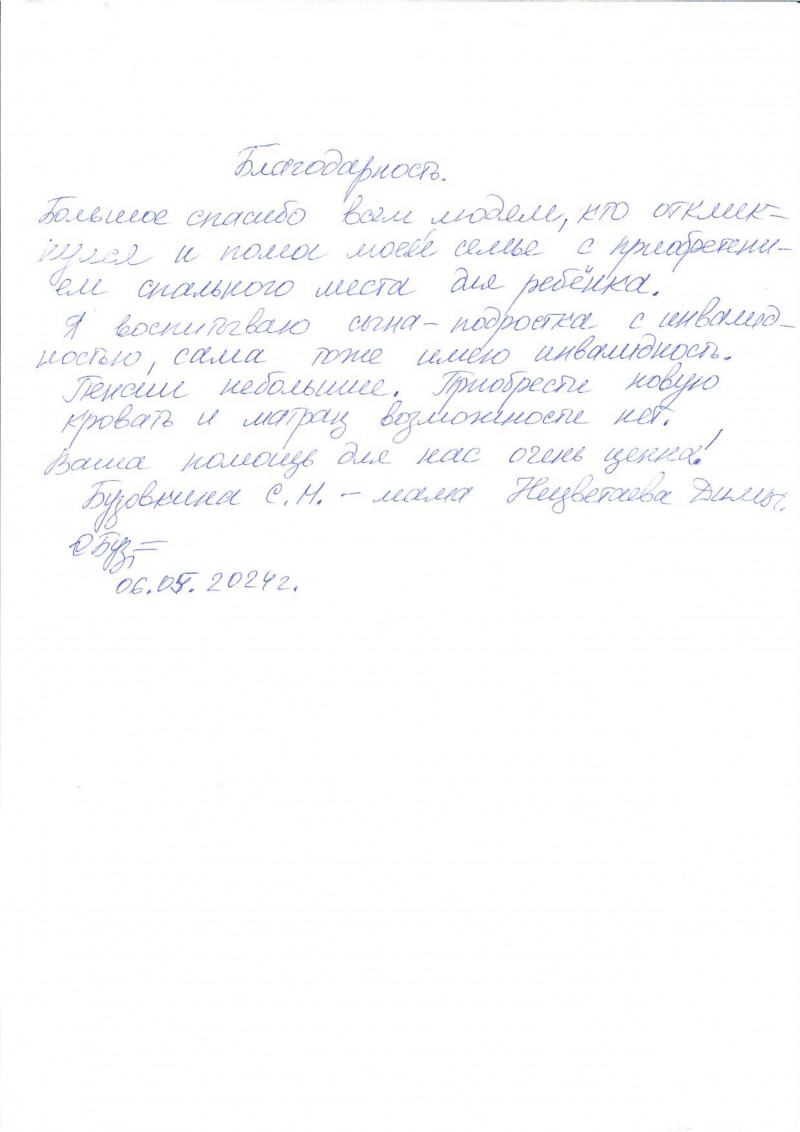 Благодарность.
Большое спасибо всем людям, кто отклик-
нулся и помог моей семье с приобретени-
ем спального места для ребёнка.
Я воспитываю сына-подростка с инвалид-
ностью, сама тоже имею инвалидность.
Пенсии небольшие. Приобрести новую
кровать и матрац возможности нет.
Ваша помощь для нас очень ценна!
Бузовкина С.Н. - мама Нецветаева Димы.
СБуз
06.05.2024г.